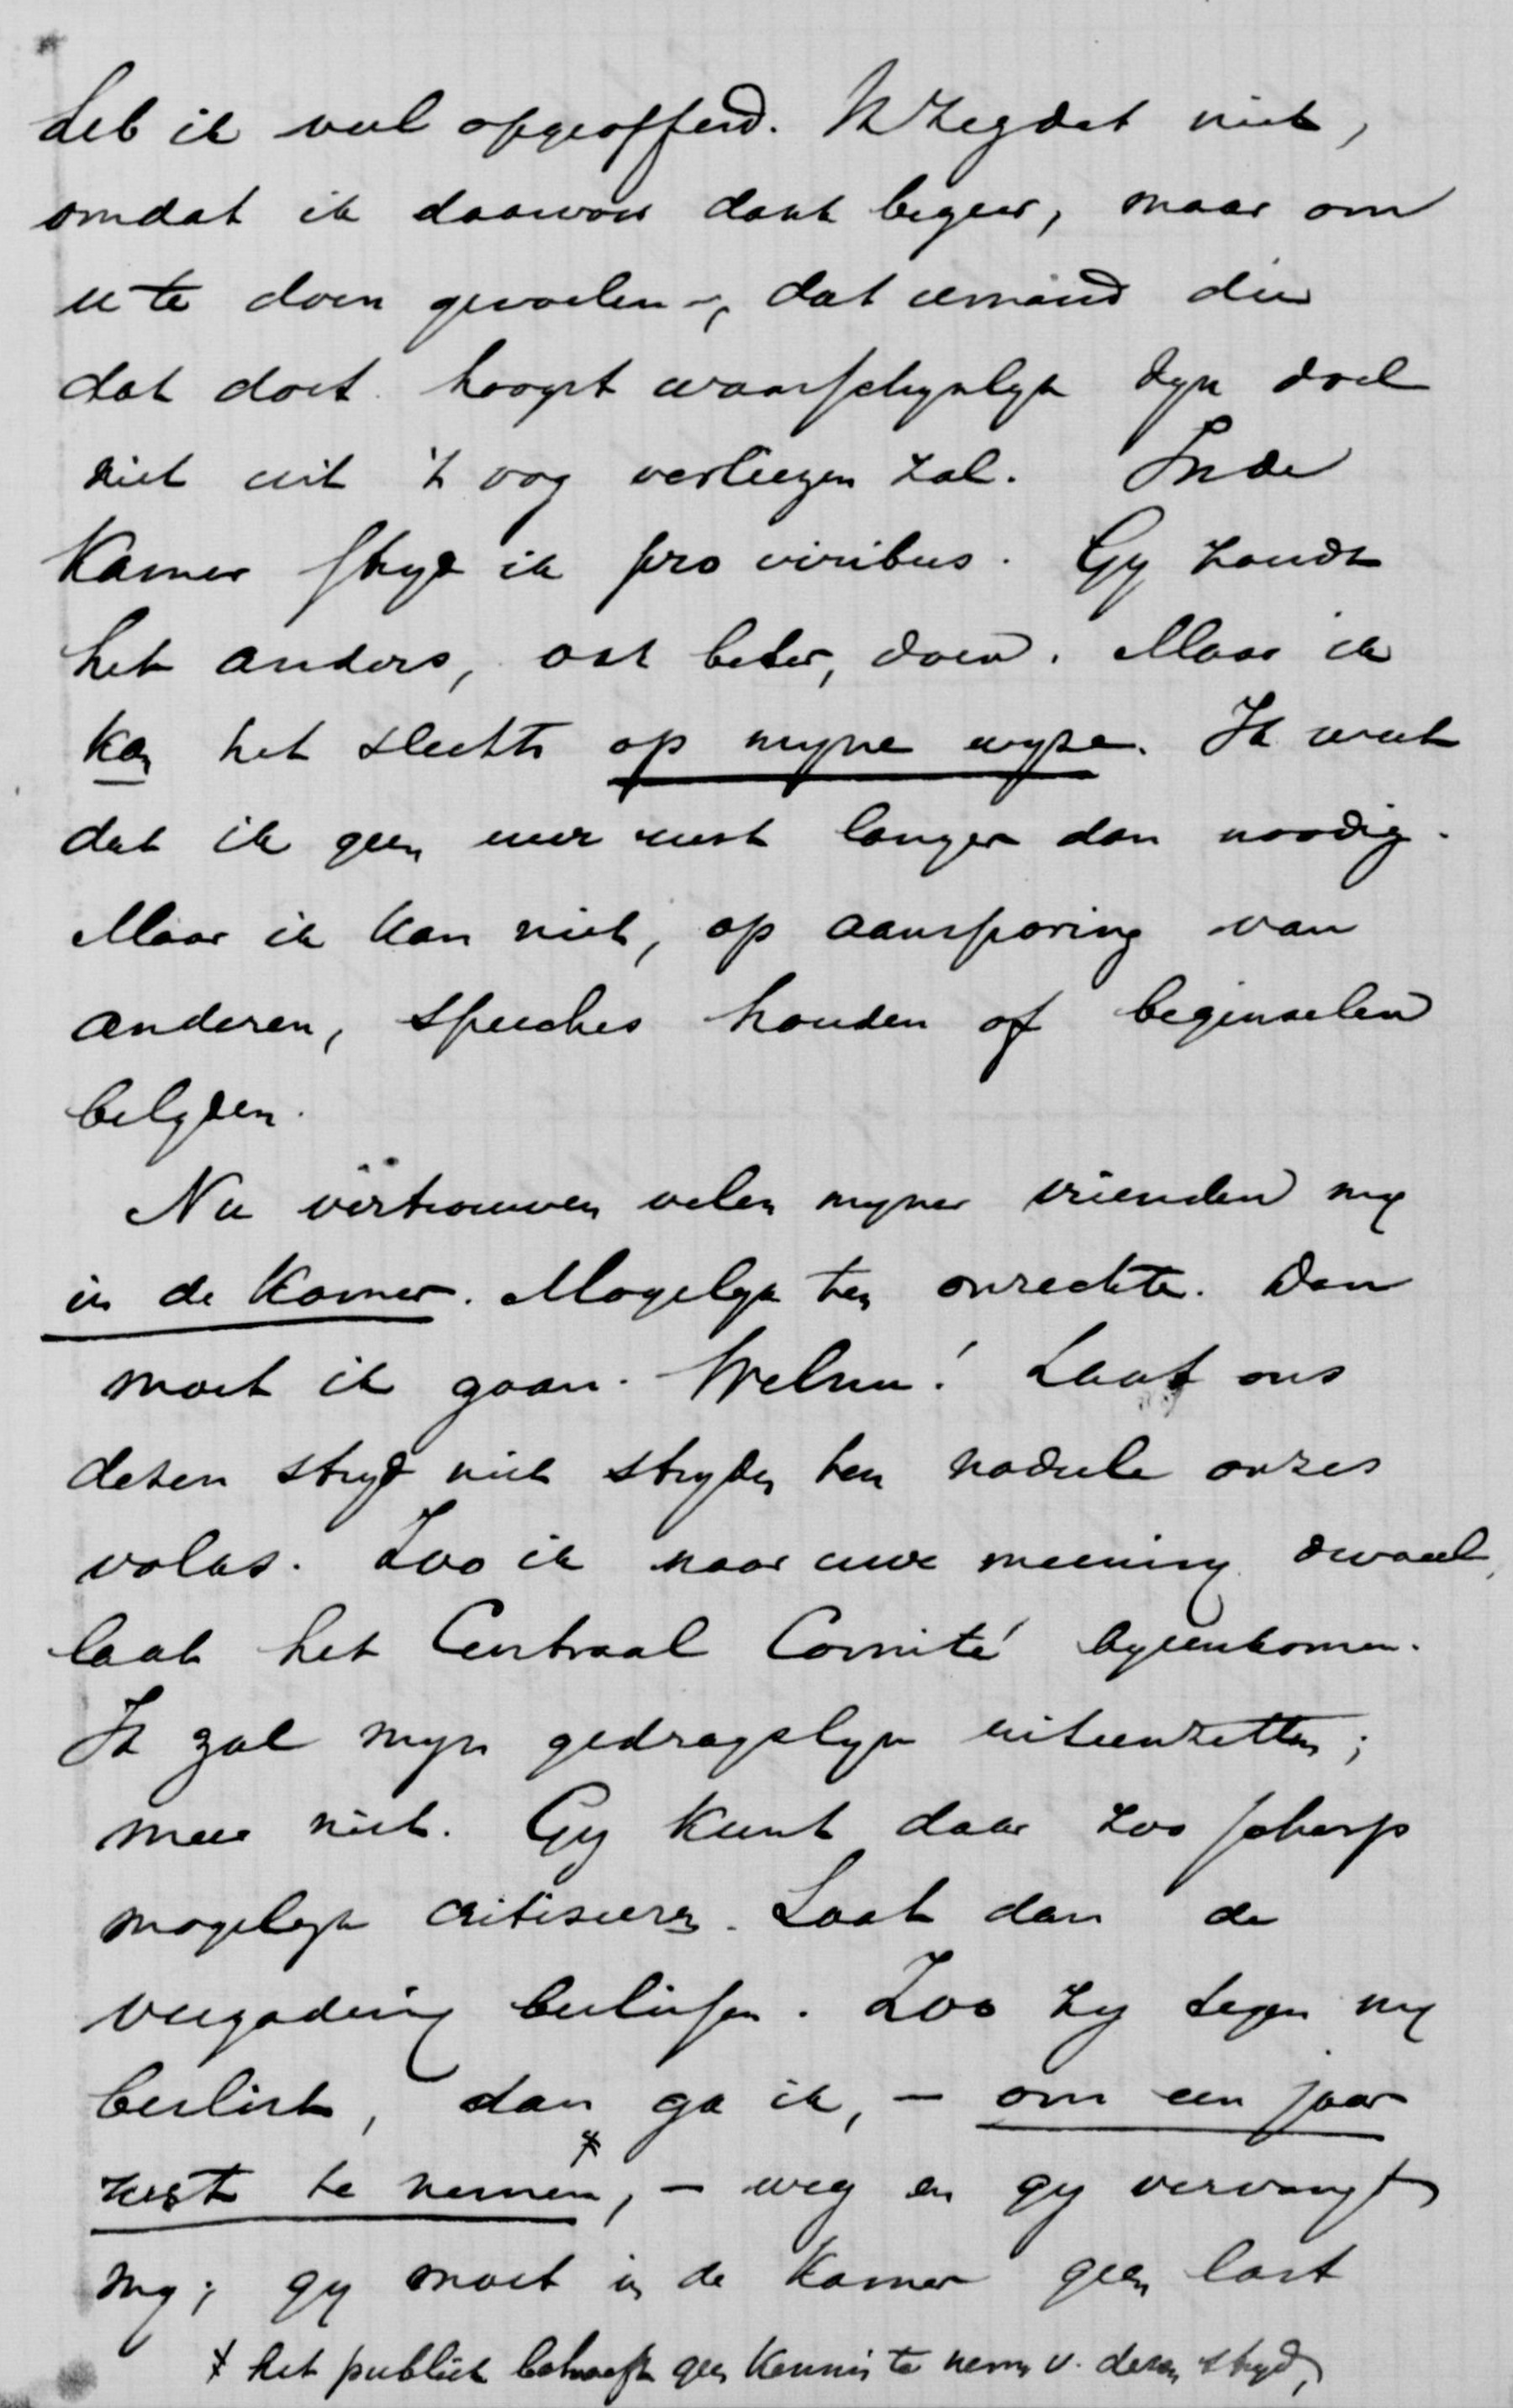 heb ik veel opgeofferd. Ik zeg dat niet,
omdat ik daarvoor dank begeer, maar om
u te doen gevoelen, dat iemand die
dat doet hoogst waarschynlyk zyn doel
niet uit 't oog verliezen zal. In de
Kamer stryd ik pro viribus. Gy zoudt
het anders, ook beter, doen. Maar ik
kan het slechts op myne wyze. Ik weet
dat ik geen uur rust langer dan noodig.
Maar ik kan niet, op aansporing van
anderen, speeches houden of beginselen
belyden.
Nu vertrouwen velen myner vrienden my
in de Kamer. Mogelyk ten onrechte. Dan
moet ik gaan. Welnu! Laat ons
dezen stryd niet stryden ten nadeele onzes
volks. Zoo ik naar uwe meening dwaal,
laat het Centraal Comité byeenkomen.
Ik zal myn gedragslyn uiteenzetten;
meer niet. Gy kunt daar zoo scherp
mogelyk critiseeren. Laat dan de
vergadering beslissen. Zoo zy tegen my
beslist, dan ga ik, – om een jaar
rust te nemen*, – weg en gy vervangt
my; gy moet in de Kamer geen last
* het publiek behoeft geen kennis te nemen v. dezen stryd,